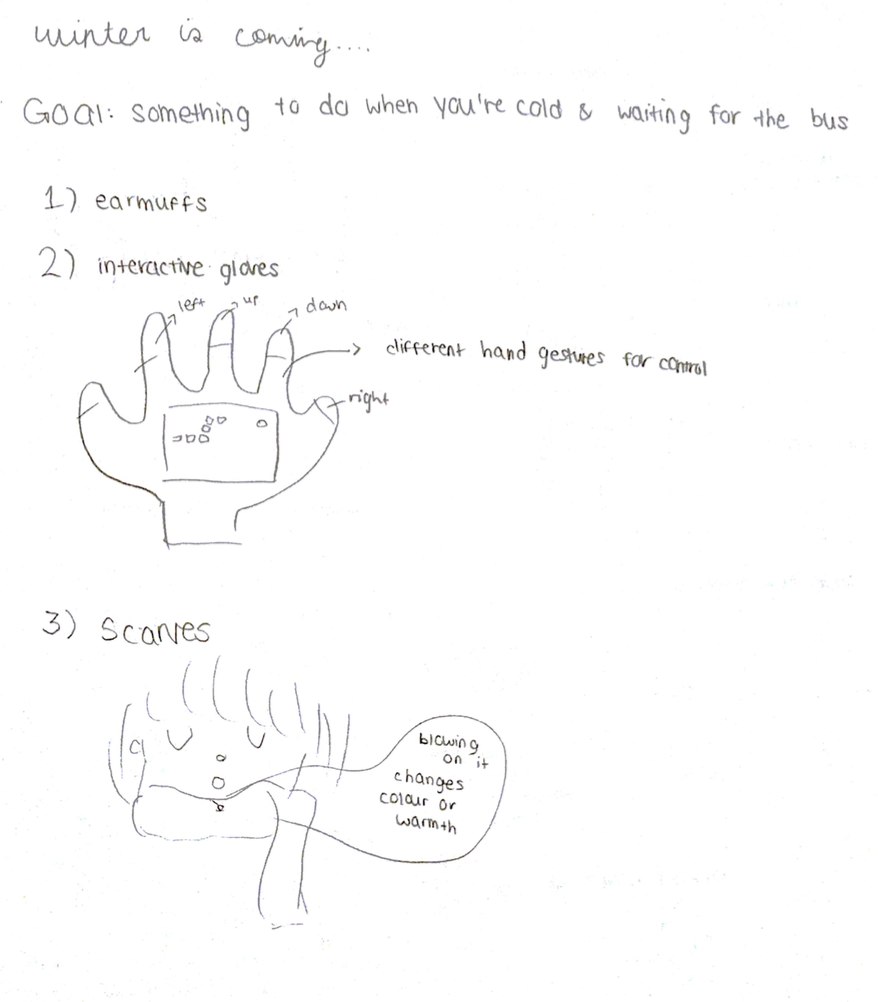 winter is coming....
GOAL: something to do when you're cold & waiting for the bus
1) earmuffs
2) interactive gloves
left
up
down
different hand gestures for control
right
3) Scarves
blowing
on it
changes
colour or
warmth